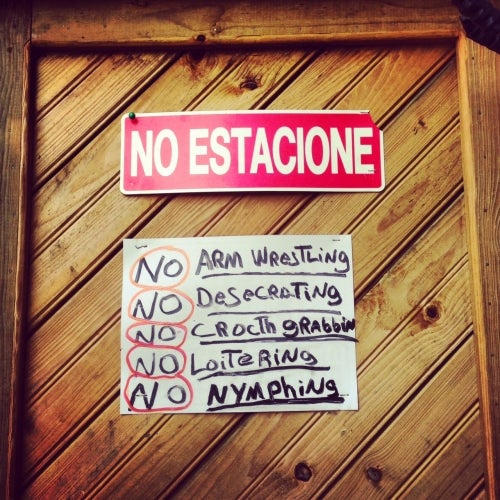 NO ESTACIONE
NO ARM WRESTLING
NO DESECRATING
NO CROCTH GRABBIN
NO LOITERING
NO NYMPHING